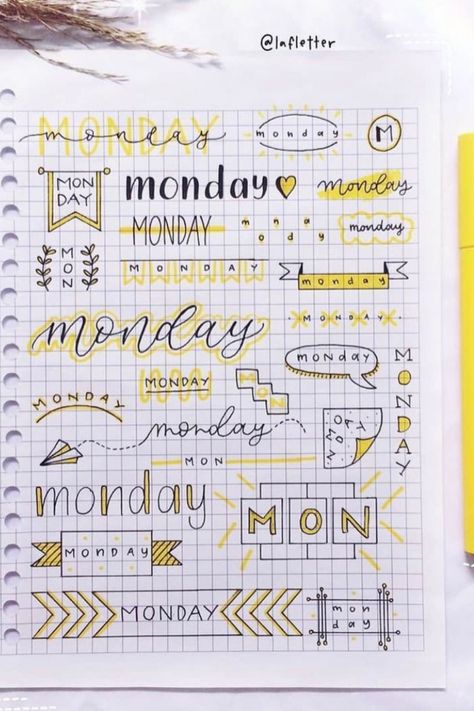 @lafletter
MONDAY
monday
monday
M
MON
DAY
monday
monday
MONDAY
monday
monday
MON
MONDAY
monday
monday
MONDAY
monday
MONDAY
MONDAY
MON
MONDAY
MONDAY
monday
MONDAY
MON
monday
MON
MONDAY
MONDAY
mon
day